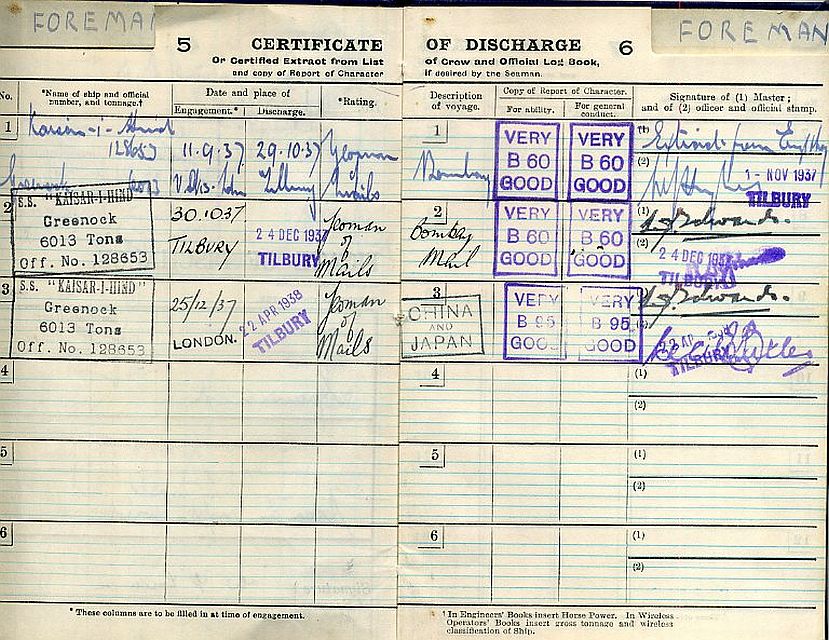 FOREMAN
FOREMAN
5 CERTIFICATE OF DISCHARGE 6
Or Certified Extract from List of Crew and Official Log Book,
and copy of Report of Character if desired by the Seaman.
No.
*Name of ship and official number, and tonnage.†
Date and place of
Engagement.*
Discharge.
*Rating.
Description of voyage.
Copy of Report of Character.
For ability.
For general conduct.
Signature of (1) Master; and of (2) officer and official stamp.
1
Kaisar-i-Hind
128653
11.9.37
29.10.37
Yeoman
Tilbury
Mails
1
Bombay
VERY
B 60
GOOD
VERY
B 60
GOOD
(1)
(2)
1 - NOV 1937
TILBURY
2
S.S. "KAISAR-I-HIND"
Greenock
6013 Tons
Off. No. 128653
30.10.37
TILBURY
24 DEC 1937
TILBURY
Yeoman
of
Mails
2
Bombay
Mail
VERY
B 60
GOOD
VERY
B 60
GOOD
(1)
Edwards.
(2)
24 DEC 1937
TILBURY
3
S.S. "KAISAR-I-HIND"
Greenock
6013 Tons
Off. No. 128653
25/12/37
LONDON.
22 APR 1938
TILBURY
Yeoman
of
Mails
3
CHINA
AND
JAPAN
VERY
B 95
GOOD
VERY
B 95
GOOD
Edwards.
TILBURY
4
4
(1)
(2)
5
5
(1)
(2)
6
6
(1)
(2)
* These columns are to be filled in at time of engagement.
† In Engineers' Books insert Horse Power. In Wireless
Operators' Books insert gross tonnage and wireless
classification of Ship.